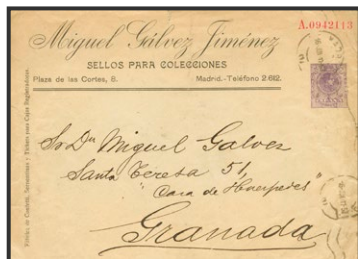 A.0942113
Miguel Gálvez Jiménez
SELLOS PARA COLECCIONES
Plaza de las Cortes, 8. Madrid.-Teléfono 2.612.
Sr Dn Miguel Galvez
Santa Teresa 51,
"Casa de Huespedes"
Granada